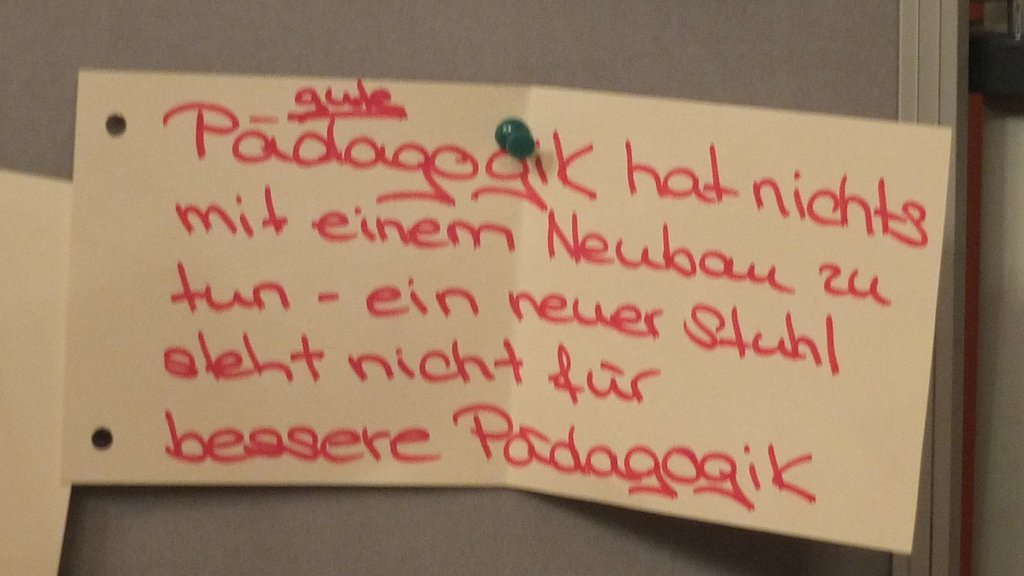 gute
Pädagogik hat nichts
mit einem Neubau zu
tun - ein neuer Stuhl
steht nicht für
bessere Pädagogik